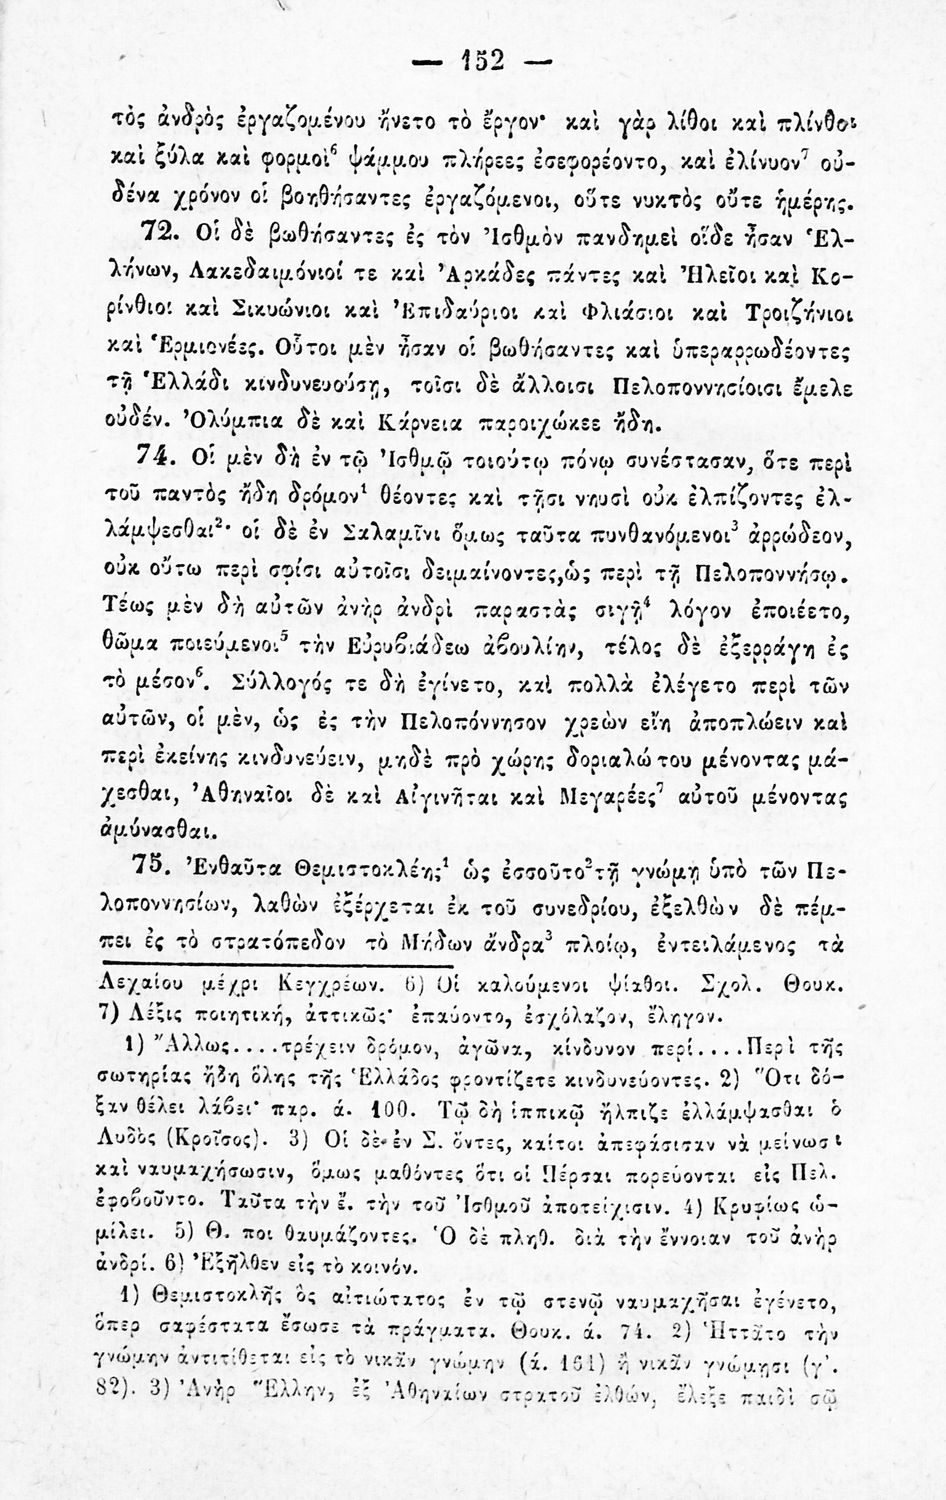 — 152 —
τὸς ἀνδρὸς ἐργαζομένου ἤνετο τὸ ἔργον· καὶ γὰρ λίθοι καὶ πλίνθοι
καὶ ξύλα καὶ φορμοὶ⁶ ψάμμου πλήρεες ἐσεφορέοντο, καὶ ἐλίνυον⁷ οὐ-
δένα χρόνον οἱ βοηθήσαντες ἐργαζόμενοι, οὔτε νυκτὸς οὔτε ἡμέρης.
72. Οἱ δὲ βωθήσαντες ἐς τὸν Ἰσθμὸν πανδημεὶ οἵδε ἦσαν Ἑλ-
λήνων, Λακεδαιμόνιοί τε καὶ Ἀρκάδες πάντες καὶ Ἠλεῖοι καὶ Κο-
ρίνθιοι καὶ Σικυώνιοι καὶ Ἐπιδαύριοι καὶ Φλιάσιοι καὶ Τροιζήνιοι
καὶ Ἑρμιονέες. Οὗτοι μὲν ἦσαν οἱ βωθήσαντες καὶ ὑπεραρρωδέοντες
τῇ Ἑλλάδι κινδυνευούσῃ, τοῖσι δὲ ἄλλοισι Πελοποννησίοισι ἔμελε
οὐδέν. Ὀλύμπια δὲ καὶ Κάρνεια παροιχώκεε ἤδη.
74. Οἱ μὲν δὴ ἐν τῷ Ἰσθμῷ τοιούτῳ πόνῳ συνέστασαν, ὅτε περὶ
τοῦ παντὸς ἤδη δρόμον¹ θέοντες καὶ τῇσι νηυσὶ οὐκ ἐλπίζοντες ἐλ-
λάμψεσθαι²· οἱ δὲ ἐν Σαλαμῖνι ὅμως ταῦτα πυνθανόμενοι³ ἀρρώδεον,
οὐκ οὕτω περὶ σφίσι αὐτοῖσι δειμαίνοντες, ὡς περὶ τῇ Πελοποννήσῳ.
Τέως μὲν δὴ αὐτῶν ἀνὴρ ἀνδρὶ παραστὰς σιγῇ⁴ λόγον ἐποιέετο,
θῶμα ποιεύμενοι⁵ τὴν Εὐρυβιάδεω ἀβουλίην, τέλος δὲ ἐξερράγη ἐς
τὸ μέσον⁶. Σύλλογός τε δὴ ἐγίνετο, καὶ πολλὰ ἐλέγετο περὶ τῶν
αὐτῶν, οἱ μὲν, ὡς ἐς τὴν Πελοπόννησον χρεὼν εἴη ἀποπλώειν καὶ
περὶ ἐκείνης κινδυνεύειν, μηδὲ πρὸ χώρης δοριαλώτου μένοντας μά-
χεσθαι, Ἀθηναῖοι δὲ καὶ Αἰγινῆται καὶ Μεγαρέες⁷ αὐτοῦ μένοντας
ἀμύνασθαι.
75. Ἐνθαῦτα Θεμιστοκλέης¹ ὡς ἑσσοῦτο² τῇ γνώμῃ ὑπὸ τῶν Πε-
λοποννησίων, λαθὼν ἐξέρχεται ἐκ τοῦ συνεδρίου, ἐξελθὼν δὲ πέμ-
πει ἐς τὸ στρατόπεδον τὸ Μήδων ἄνδρα³ πλοίῳ, ἐντειλάμενος τὰ
Λεχαίου μέχρι Κεγχρέων. 6) Οἱ καλούμενοι ψίαθοι. Σχολ. Θουκ.
7) Λέξις ποιητική, ἀττικῶς· ἐπαύοντο, ἐσχόλαζον, ἔληγον.
1) Ἄλλως....τρέχειν δρόμον, ἀγῶνα, κίνδυνον περί....Περὶ τῆς
σωτηρίας ἤδη ὅλης τῆς Ἑλλάδος φροντίζετε κινδυνεύοντες. 2) Ὅτι δό-
ξαν θέλει λάβει· παρ. ά. 100. Τῷ δὴ ἱππικῷ ἤλπιζε ἐλλάμψασθαι ὁ
Λυδὸς (Κροῖσος). 3) Οἱ δὲ ἐν Σ. ὄντες, καίτοι ἀπεφάσισαν νὰ μείνωσι
καὶ ναυμαχήσωσιν, ὅμως μαθόντες ὅτι οἱ Πέρσαι πορεύονται εἰς Πελ.
ἐφοβοῦντο. Ταῦτα τὴν ἔ. τὴν τοῦ Ἰσθμοῦ ἀποτείχισιν. 4) Κρυφίως ὡ-
μίλει. 5) Θ. ποι θαυμάζοντες. Ὁ δὲ πληθ. διὰ τὴν ἔννοιαν τοῦ ἀνὴρ
ἀνδρί. 6) Ἐξῆλθεν εἰς τὸ κοινόν.
1) Θεμιστοκλῆς ὃς αἰτιώτατος ἐν τῷ στενῷ ναυμαχῆσαι ἐγένετο,
ὅπερ σαφέστατα ἔσωσε τὰ πράγματα. Θουκ. ά. 74. 2) Ἡττᾶτο τὴν
γνώμην ἀντιτίθεται εἰς τὸ νικᾶν γνώμην (ά. 161) ἢ νικᾶν γνώμῃσι (γ΄.
82). 3) Ἀνὴρ Ἕλλην, ἐξ Ἀθηναίων στρατοῦ ἐλθών, ἔλεξε παιδὶ σῷ